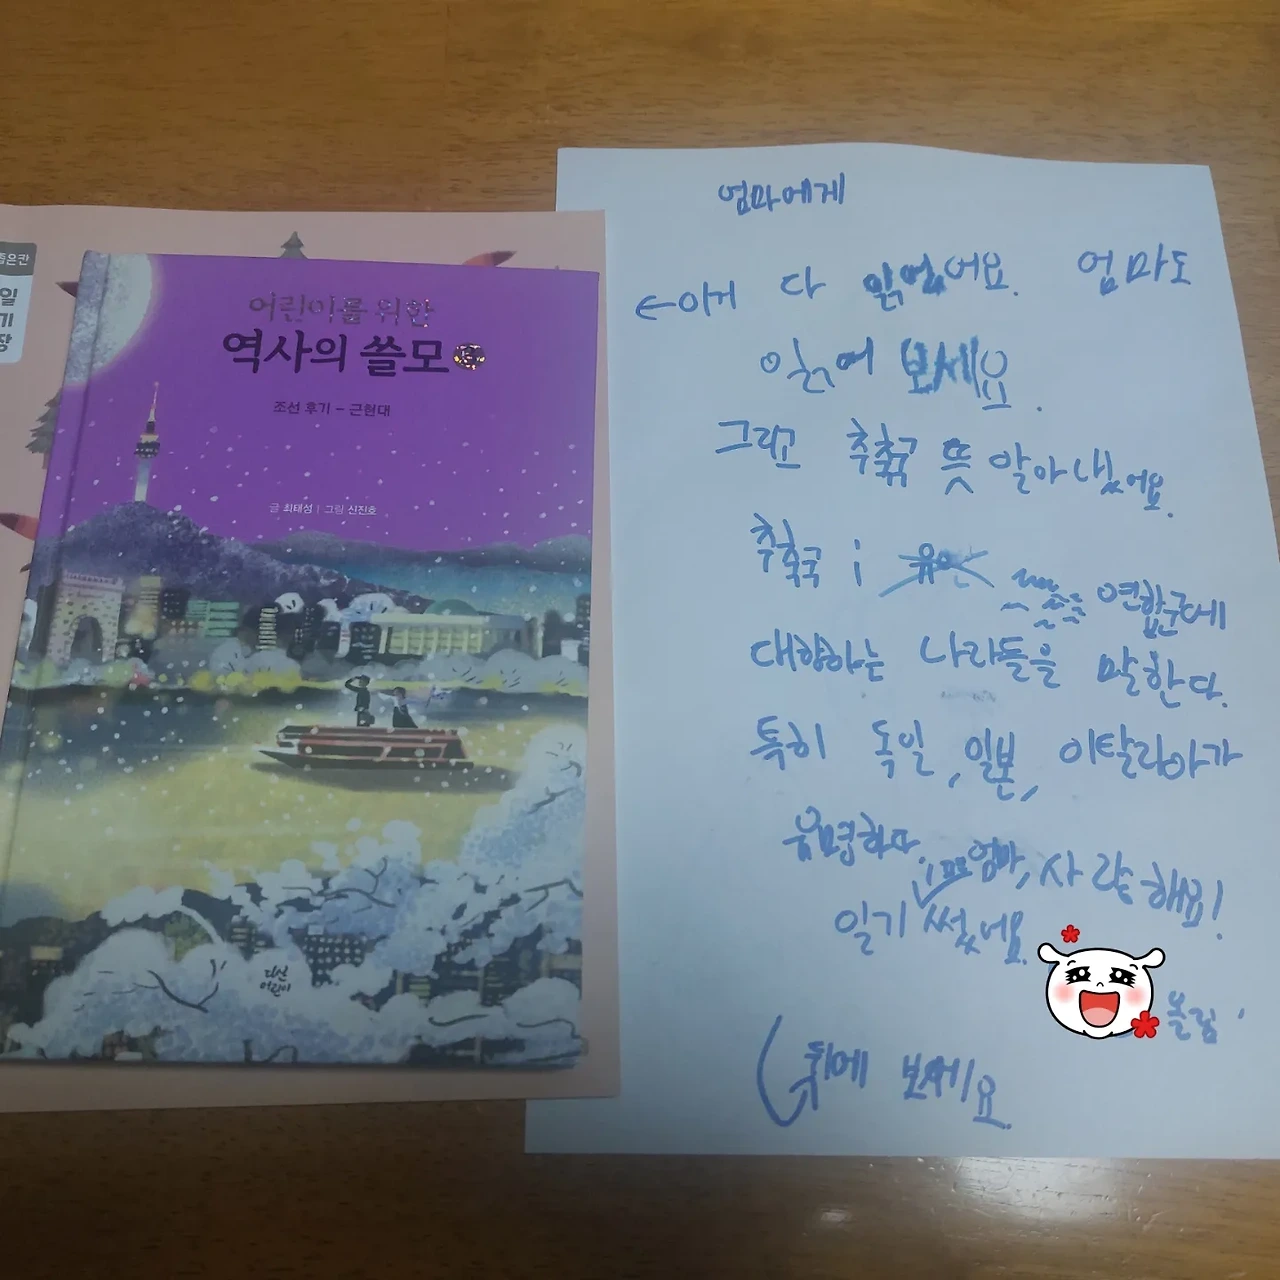 좋은칸
일
기
장
어린이를 위한
역사의 쓸모
조선 후기 - 근현대
글 최태성 | 그림 신진호
다산
어린이
엄마에게
←이거 다 읽었어요. 엄마도
읽어 보세요.
그리고 추축국 뜻 알아냈어요.
추축국 : 연합군에
대항하는 나라들을 말한다.
특히 독일, 일본, 이탈리아가
유명하다. 엄마, 사랑해요!
일기 썼네요.
올림
뒤에 보세요.